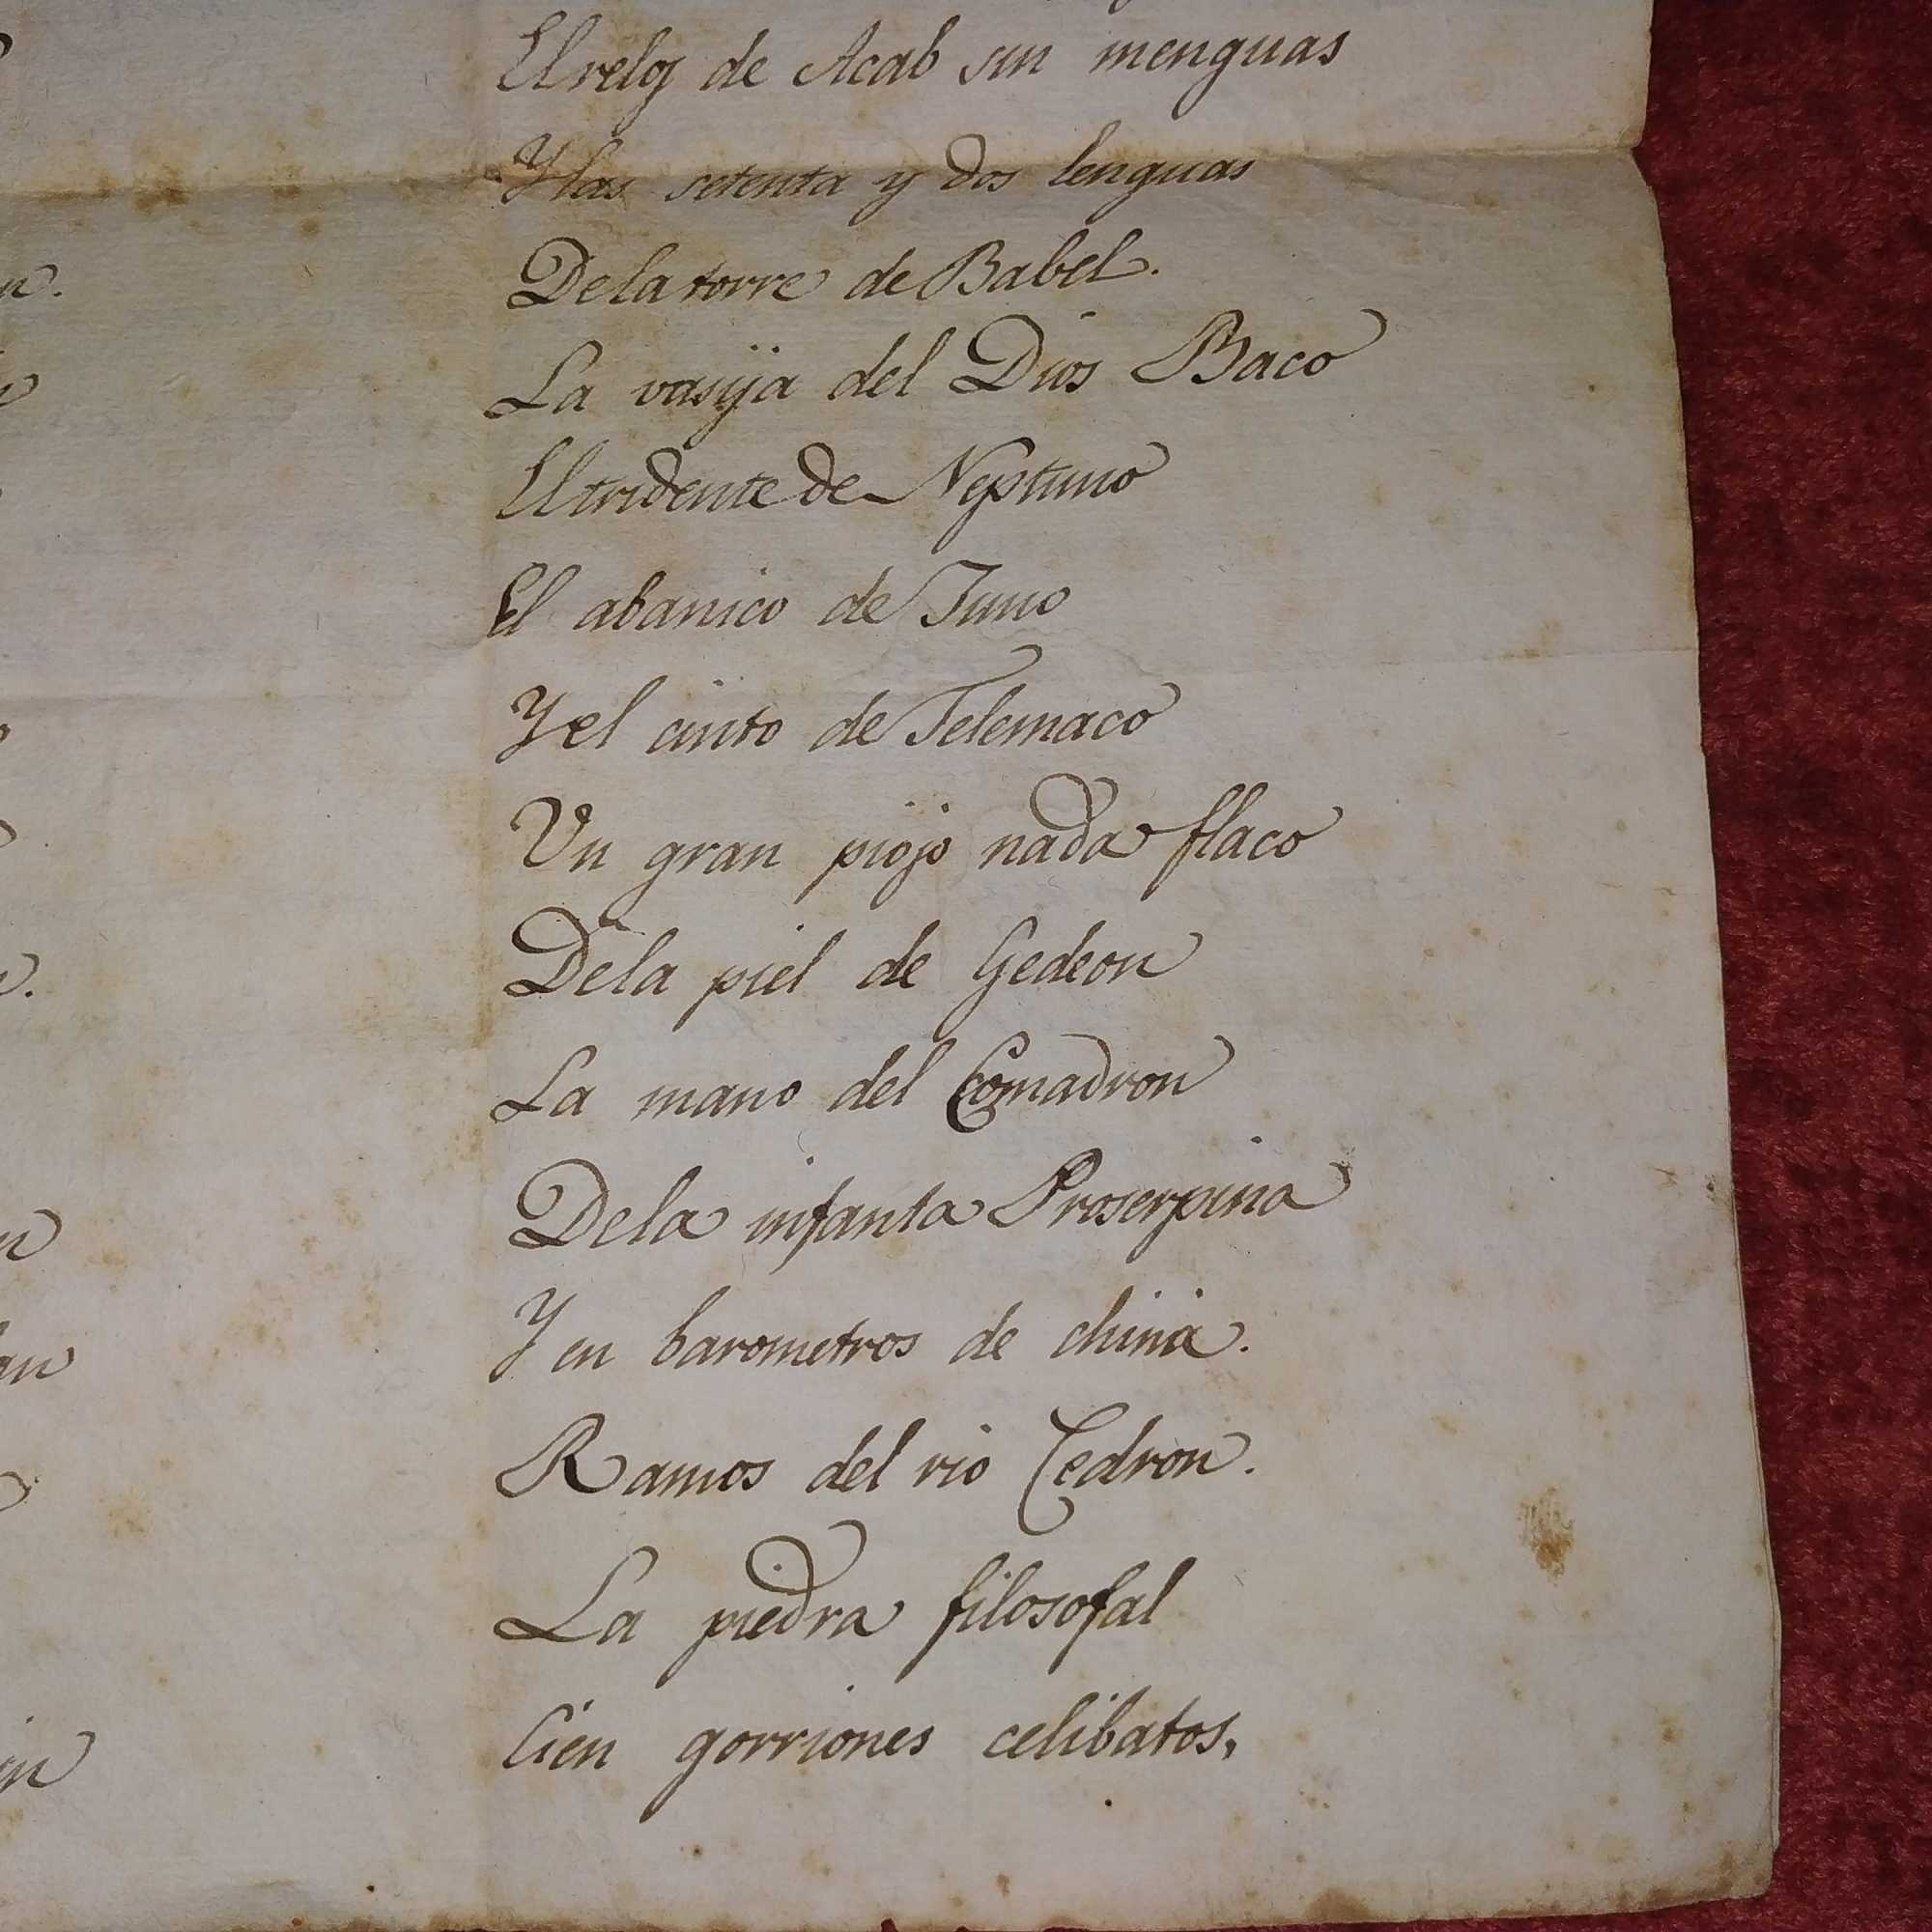 El relog de Acab sin menguas
Y las setenta y dos lenguas
De la torre de Babel.
La vasija del Dios Baco
El tridente de Neptuno
El abanico de Juno
Y el cinto de Telemaco
Un gran piojo nada flaco
De la piel de Gedeon
La mano del Comadron
De la infanta Proserpina
Y en barometros de china.
Ramos del rio Cedron.
La piedra filosofal
Cien gorriones celibatos,